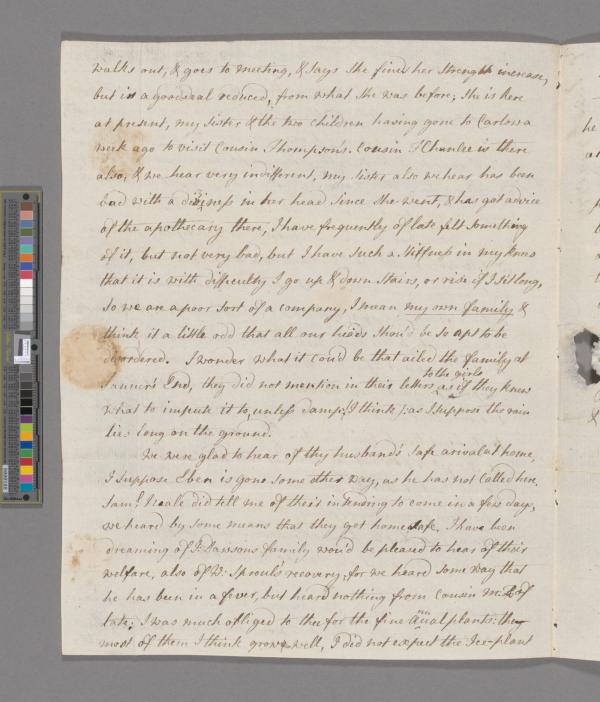 walks out, & goes to meeting, & says she finds her strength increase,
but is a good deal reduced, from what she was before; she is here
at present, my sister & the two children having gone to Carlow a
week ago to visit Cousin Thompson's. Cousin is there
also, & we hear very indifferent, my sister also we hear has been
bad with a diziness in her head since she went, & has got advice
of the apothecary there, I have frequently of late felt something
of it, but not very bad, but I have such a stiffness in my knees
that it is with difficulty I go up & down stairs, or rise if I sit long,
so we are a poor sort of a company, I mean my own family &
think it a little odd that all our heads should be so apt to be
disordered. I wonder what it could be that ailed the family at
End, they did not mention in their letters to the girls as if they knew
what to impute it to, unless damp, I think, as I suppose the rain
lies long on the ground.
We were glad to hear of thy husband's safe arival at home,
I suppose Eben is gone some other way, as he has not called here,
Saml Neale did tell me of their intending to come in a few days,
we heard by some means that they got home safe, I have been
dreaming of Dawsons family wou'd be pleased to hear of their
welfare, also of Sproul's recovery, for we heard some way that
he has been in a fever, but heard nothing from Cousin of
late; I was much obliged to thee for the fine annual plants: they
most of them I think grow well, I did not expect the Ice-plant